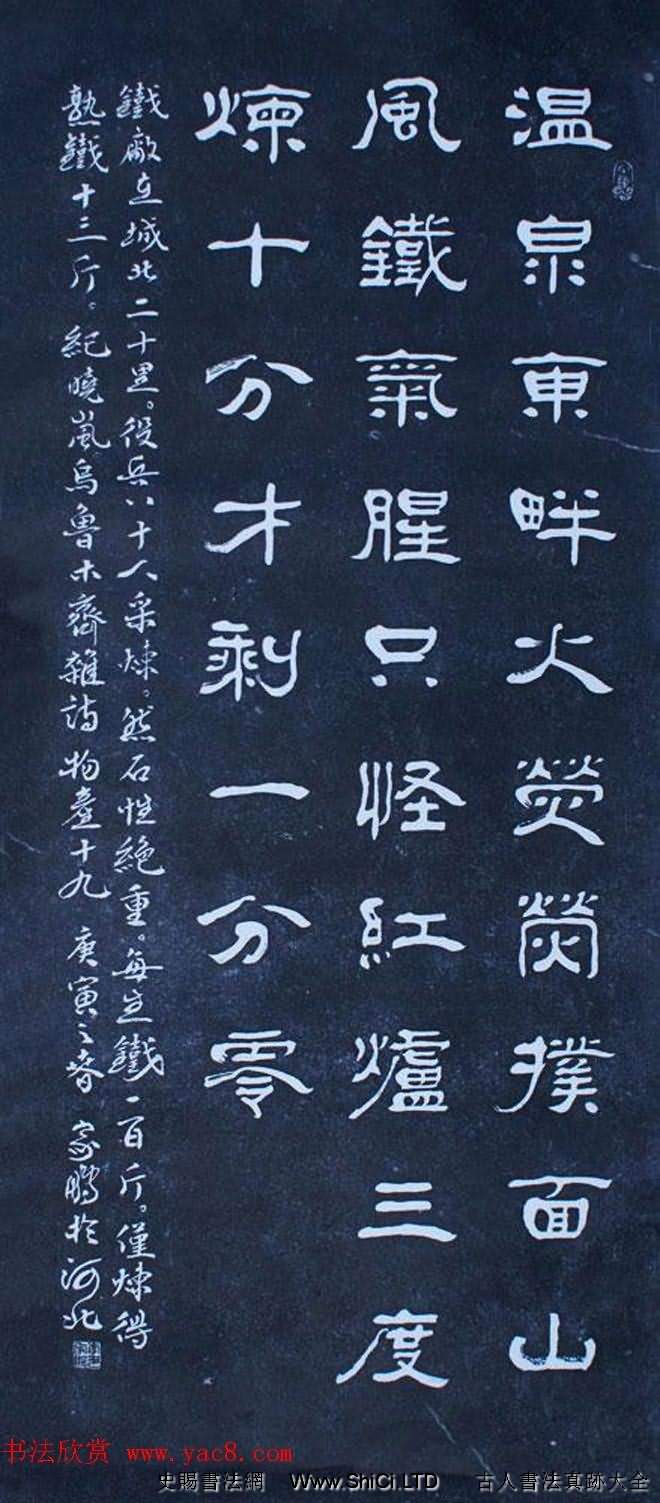 温泉東畔火熒熒撲面山
風鐵氣腥只怪紅爐三度
煉十分才剩一分零
鐵廠在城北二十里。役兵八十人采煉。然石性絶重。每生鐵一百斤。僅煉得
熟鐵十三斤。紀曉嵐烏魯木齊雜詩物產十九 庚寅之春 家鵬於河北
书法欣赏 www.yac8.com
史賜書法網 Www.ShiCi.LTD 古人書法真跡大全